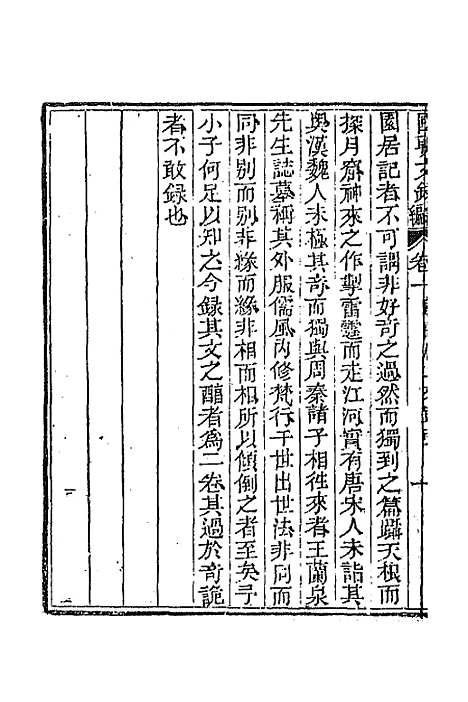 國朝文錄續編 卷一
園居記者不可謂非好奇之過然而獨到之篇躡天根而
探月窟神來之作掣雷霆而走江河實有唐宋人未詣其
奧漢魏人未極其奇而獨與周秦諸子相徃來者王蘭泉
先生誌墓稱其外服儒風内修梵行于世出世法非同而
同非别而别非緣而緣非相而相所以傾倒之者至矣予
小子何足以知之今録其文之醇者爲二卷其過於奇詭
者不敢録也